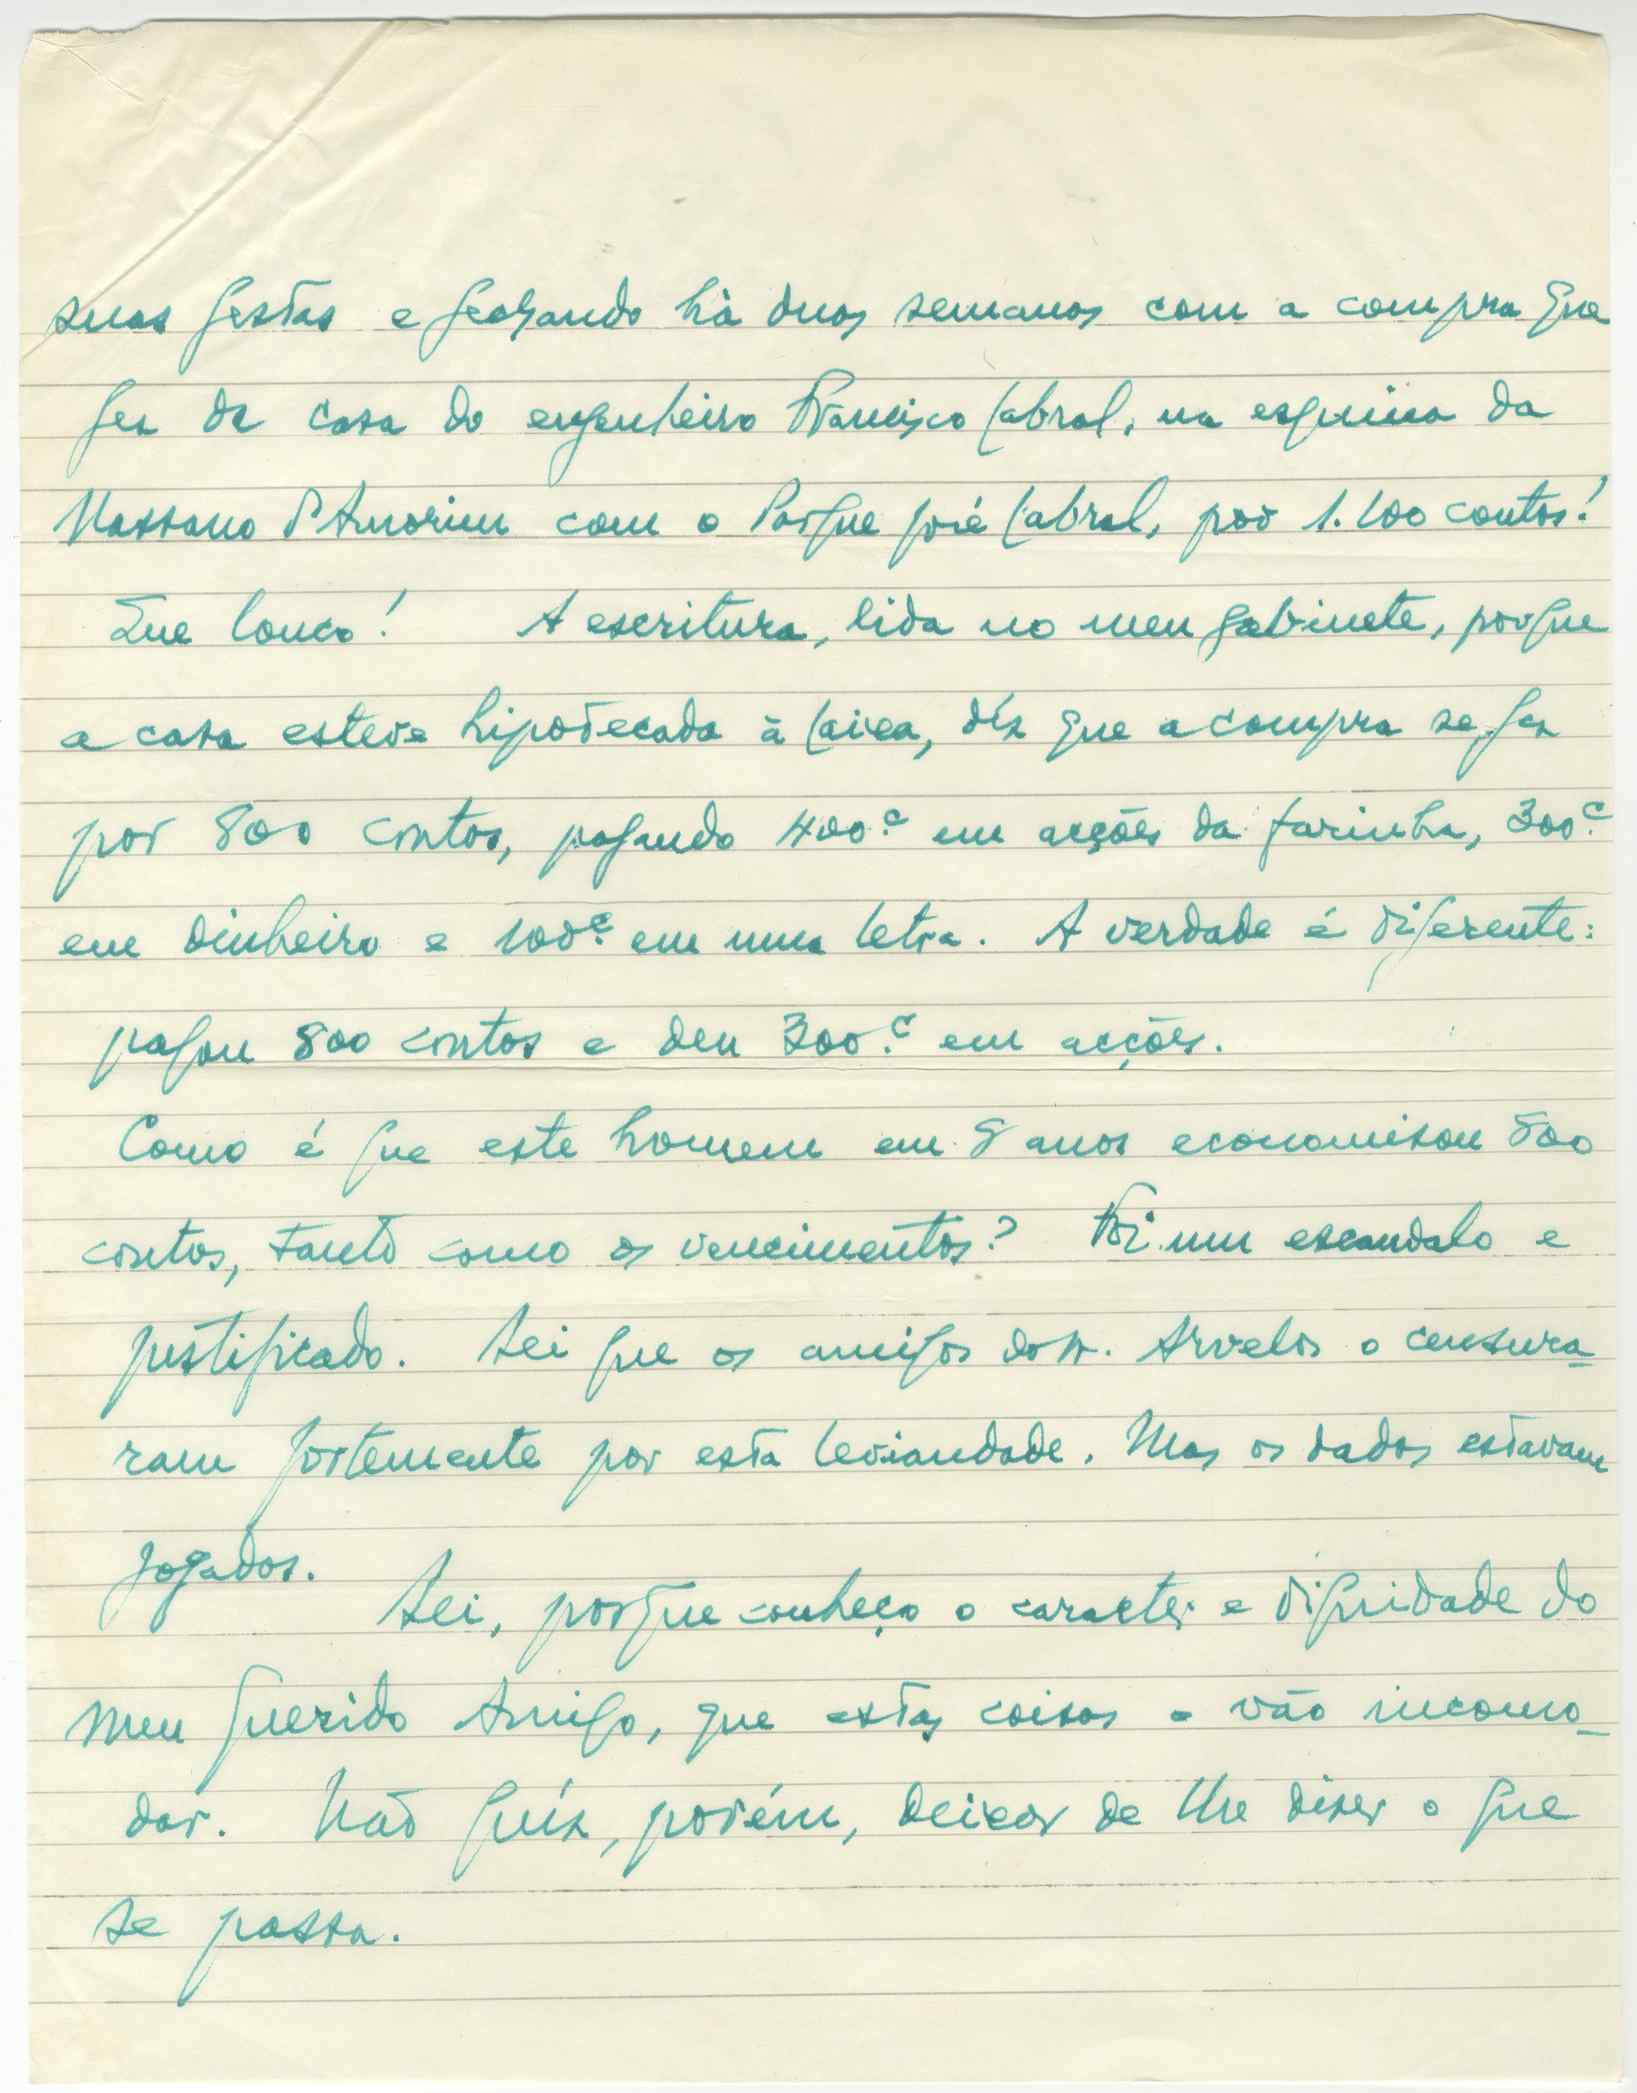 suas festas e fechando há duas semanas com a compra que
fez da casa do engenheiro Francisco Cabral, na esquina da
Massano d'Amorim com o Parque José Cabral, por 1.100 contos!
Que louco! A escritura, lida no meu gabinete, porque
a casa esteve hipotecada à Caixa, díz que a compra se fez
por 800 contos, pagando 400.c em acções da farinha, 300.c
em dinheiro e 100.c em uma letra. A verdade é diferente:
pagou 800 contos e deu 300.c em acções.
Como é que este homem em 8 anos economisou 800
contos, tanto como os vencimentos? Foi um escandalo e
justificado. Sei que os amigos do Arvelos o censura-
ram fortemente por esta leviandade. Mas os dados estavam
jogados.
Sei, porque conheço o caracter e dignidade do
meu querido Amigo, que estas coisas o vão incomo-
dar. Não quís, porém, deixar de lhe dizer o que
se passa.